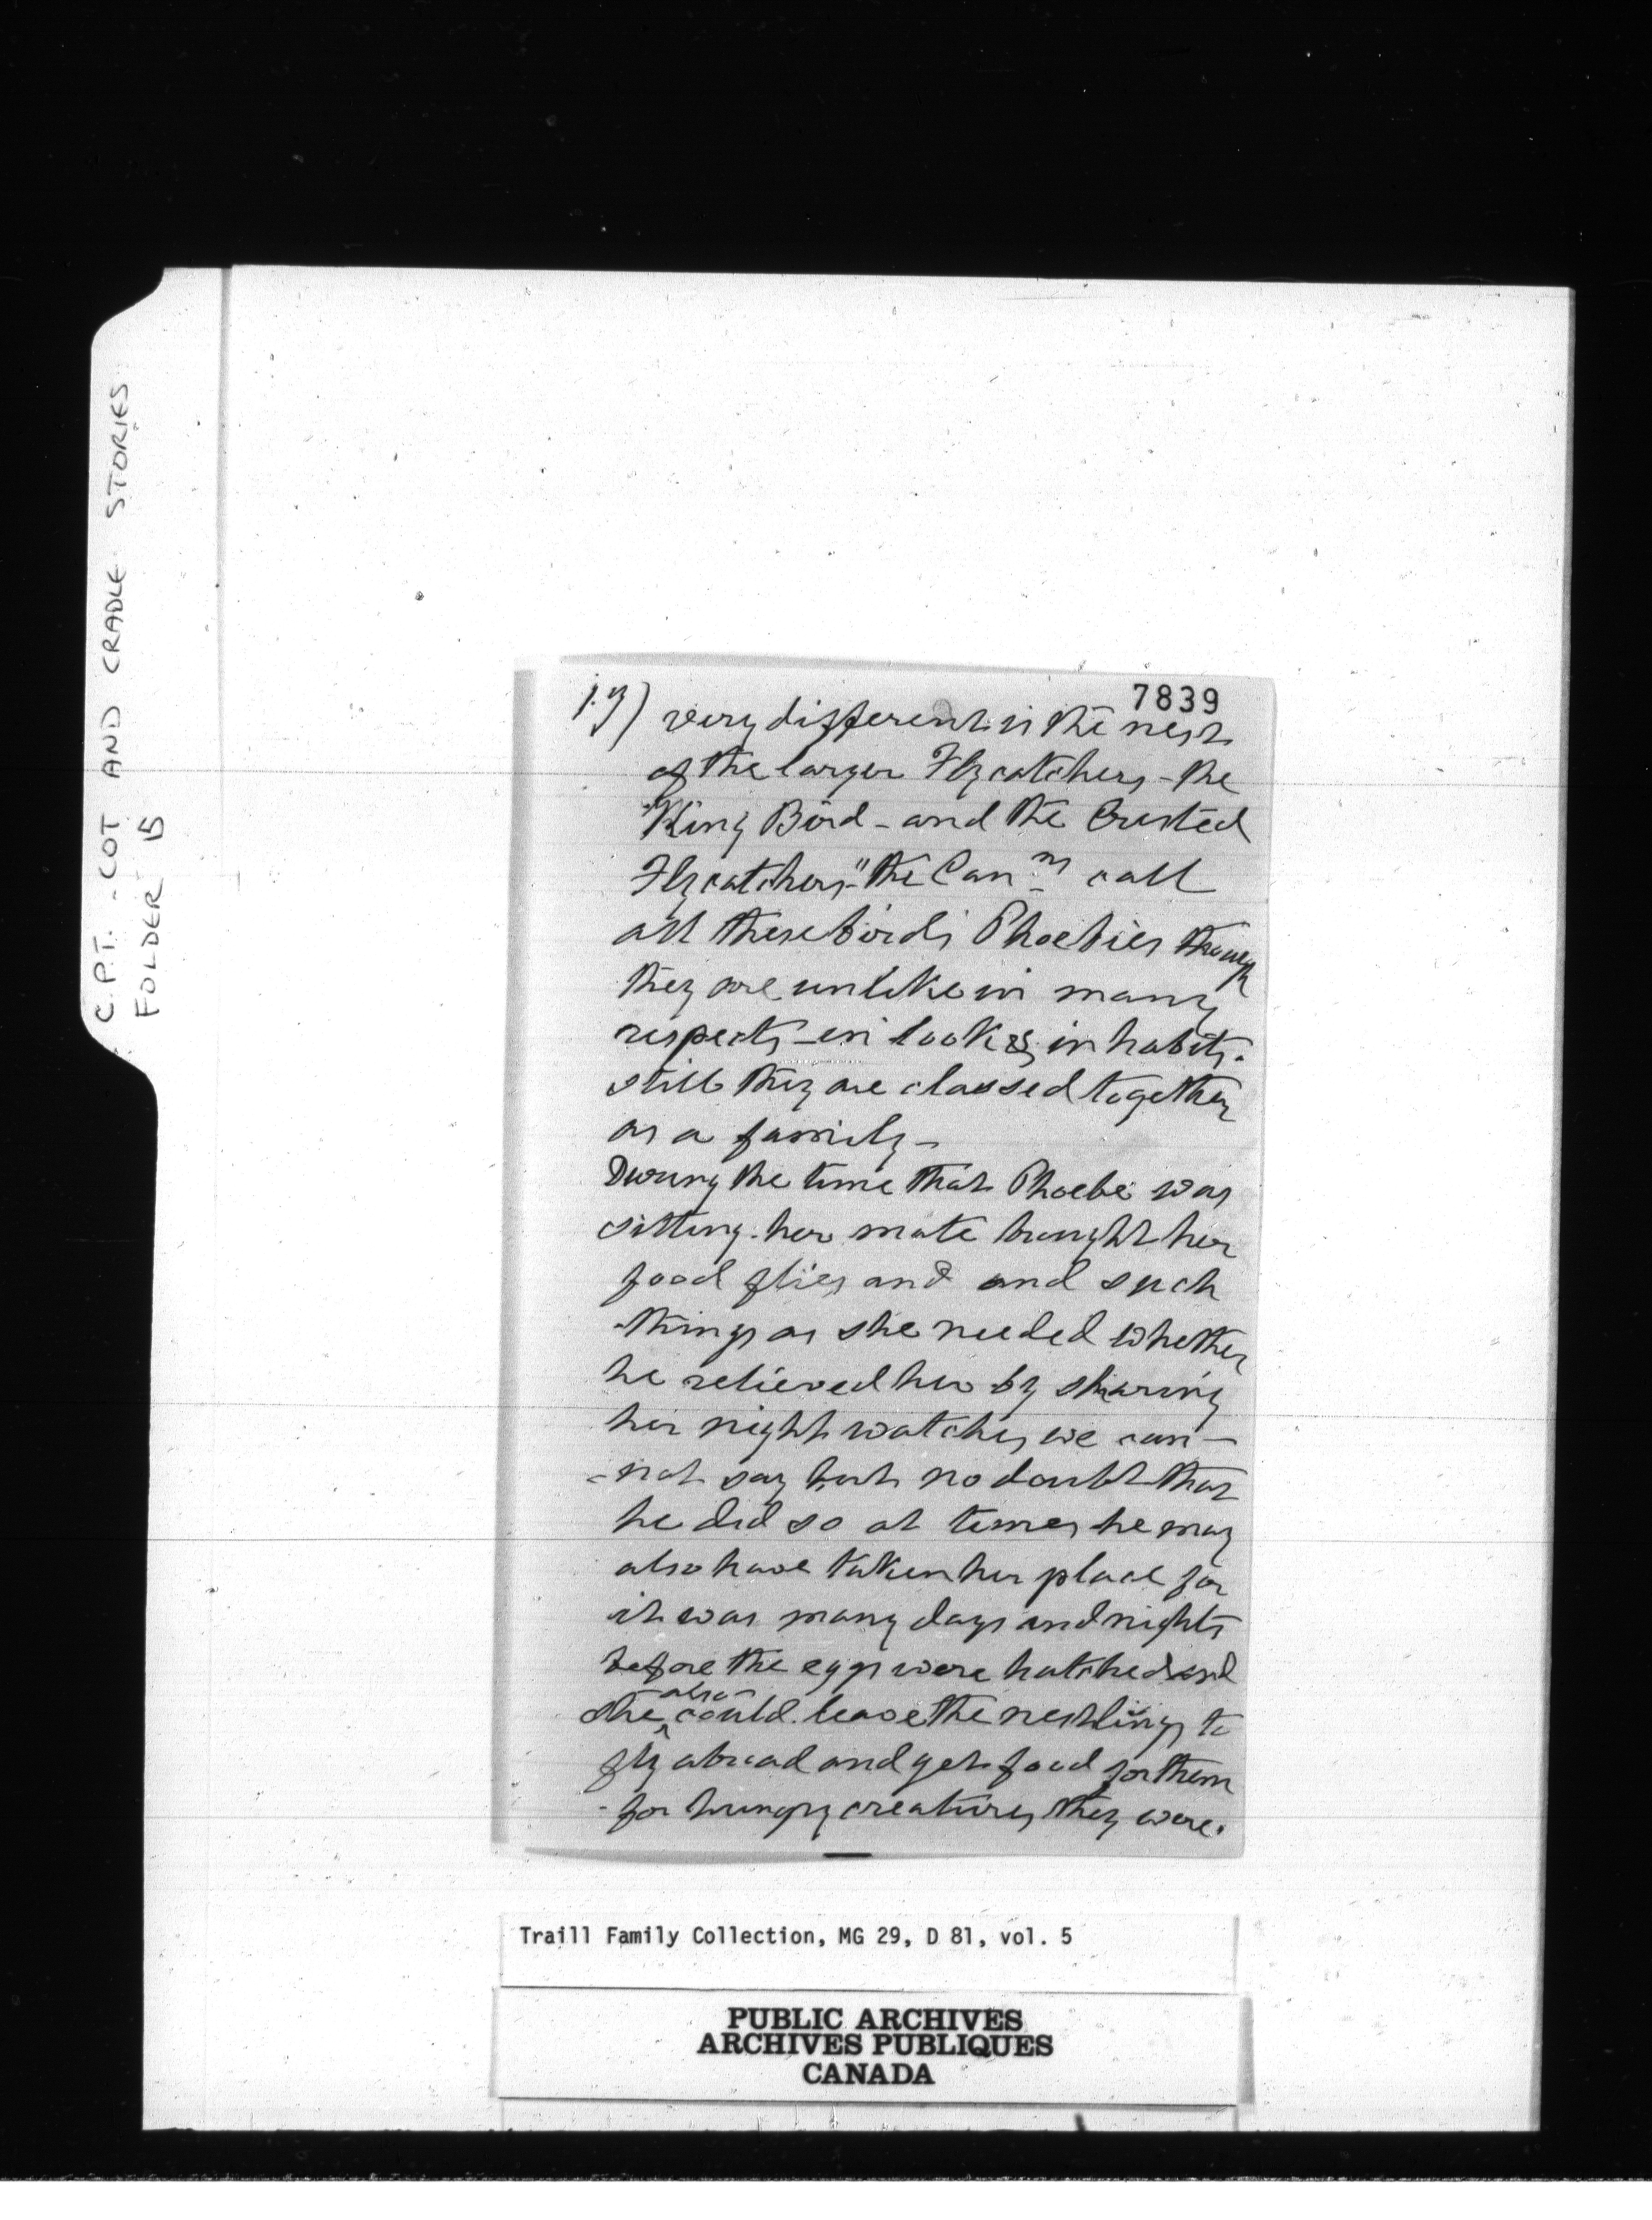 C.P.T. - COT AND CRADLE STORIES
FOLDER 15
7839
very different is the nest
of the larger Flycatchers - the
"King Bird - and the Crested
Flycatchers" the Can-ns call
all these birds Phoebies though
they are unlike in many
respects - in look & in habits.
still they are classed together
as a family -
During the time that Phoebe was
sitting. her mate brought her
food flies and and such
things as she needed whether
he relieved her by sharing
her night watches we can-
-not say but no doubt that
he did so at times he may
also have taken her place for
it was many days and nights
before the eggs were hatched and
she also could leave the nestlings to
fly abroad and get food for them
- for hungry creatures they were.
Traill Family Collection, MG 29, D 81, vol. 5
PUBLIC ARCHIVES
ARCHIVES PUBLIQUES
CANADA